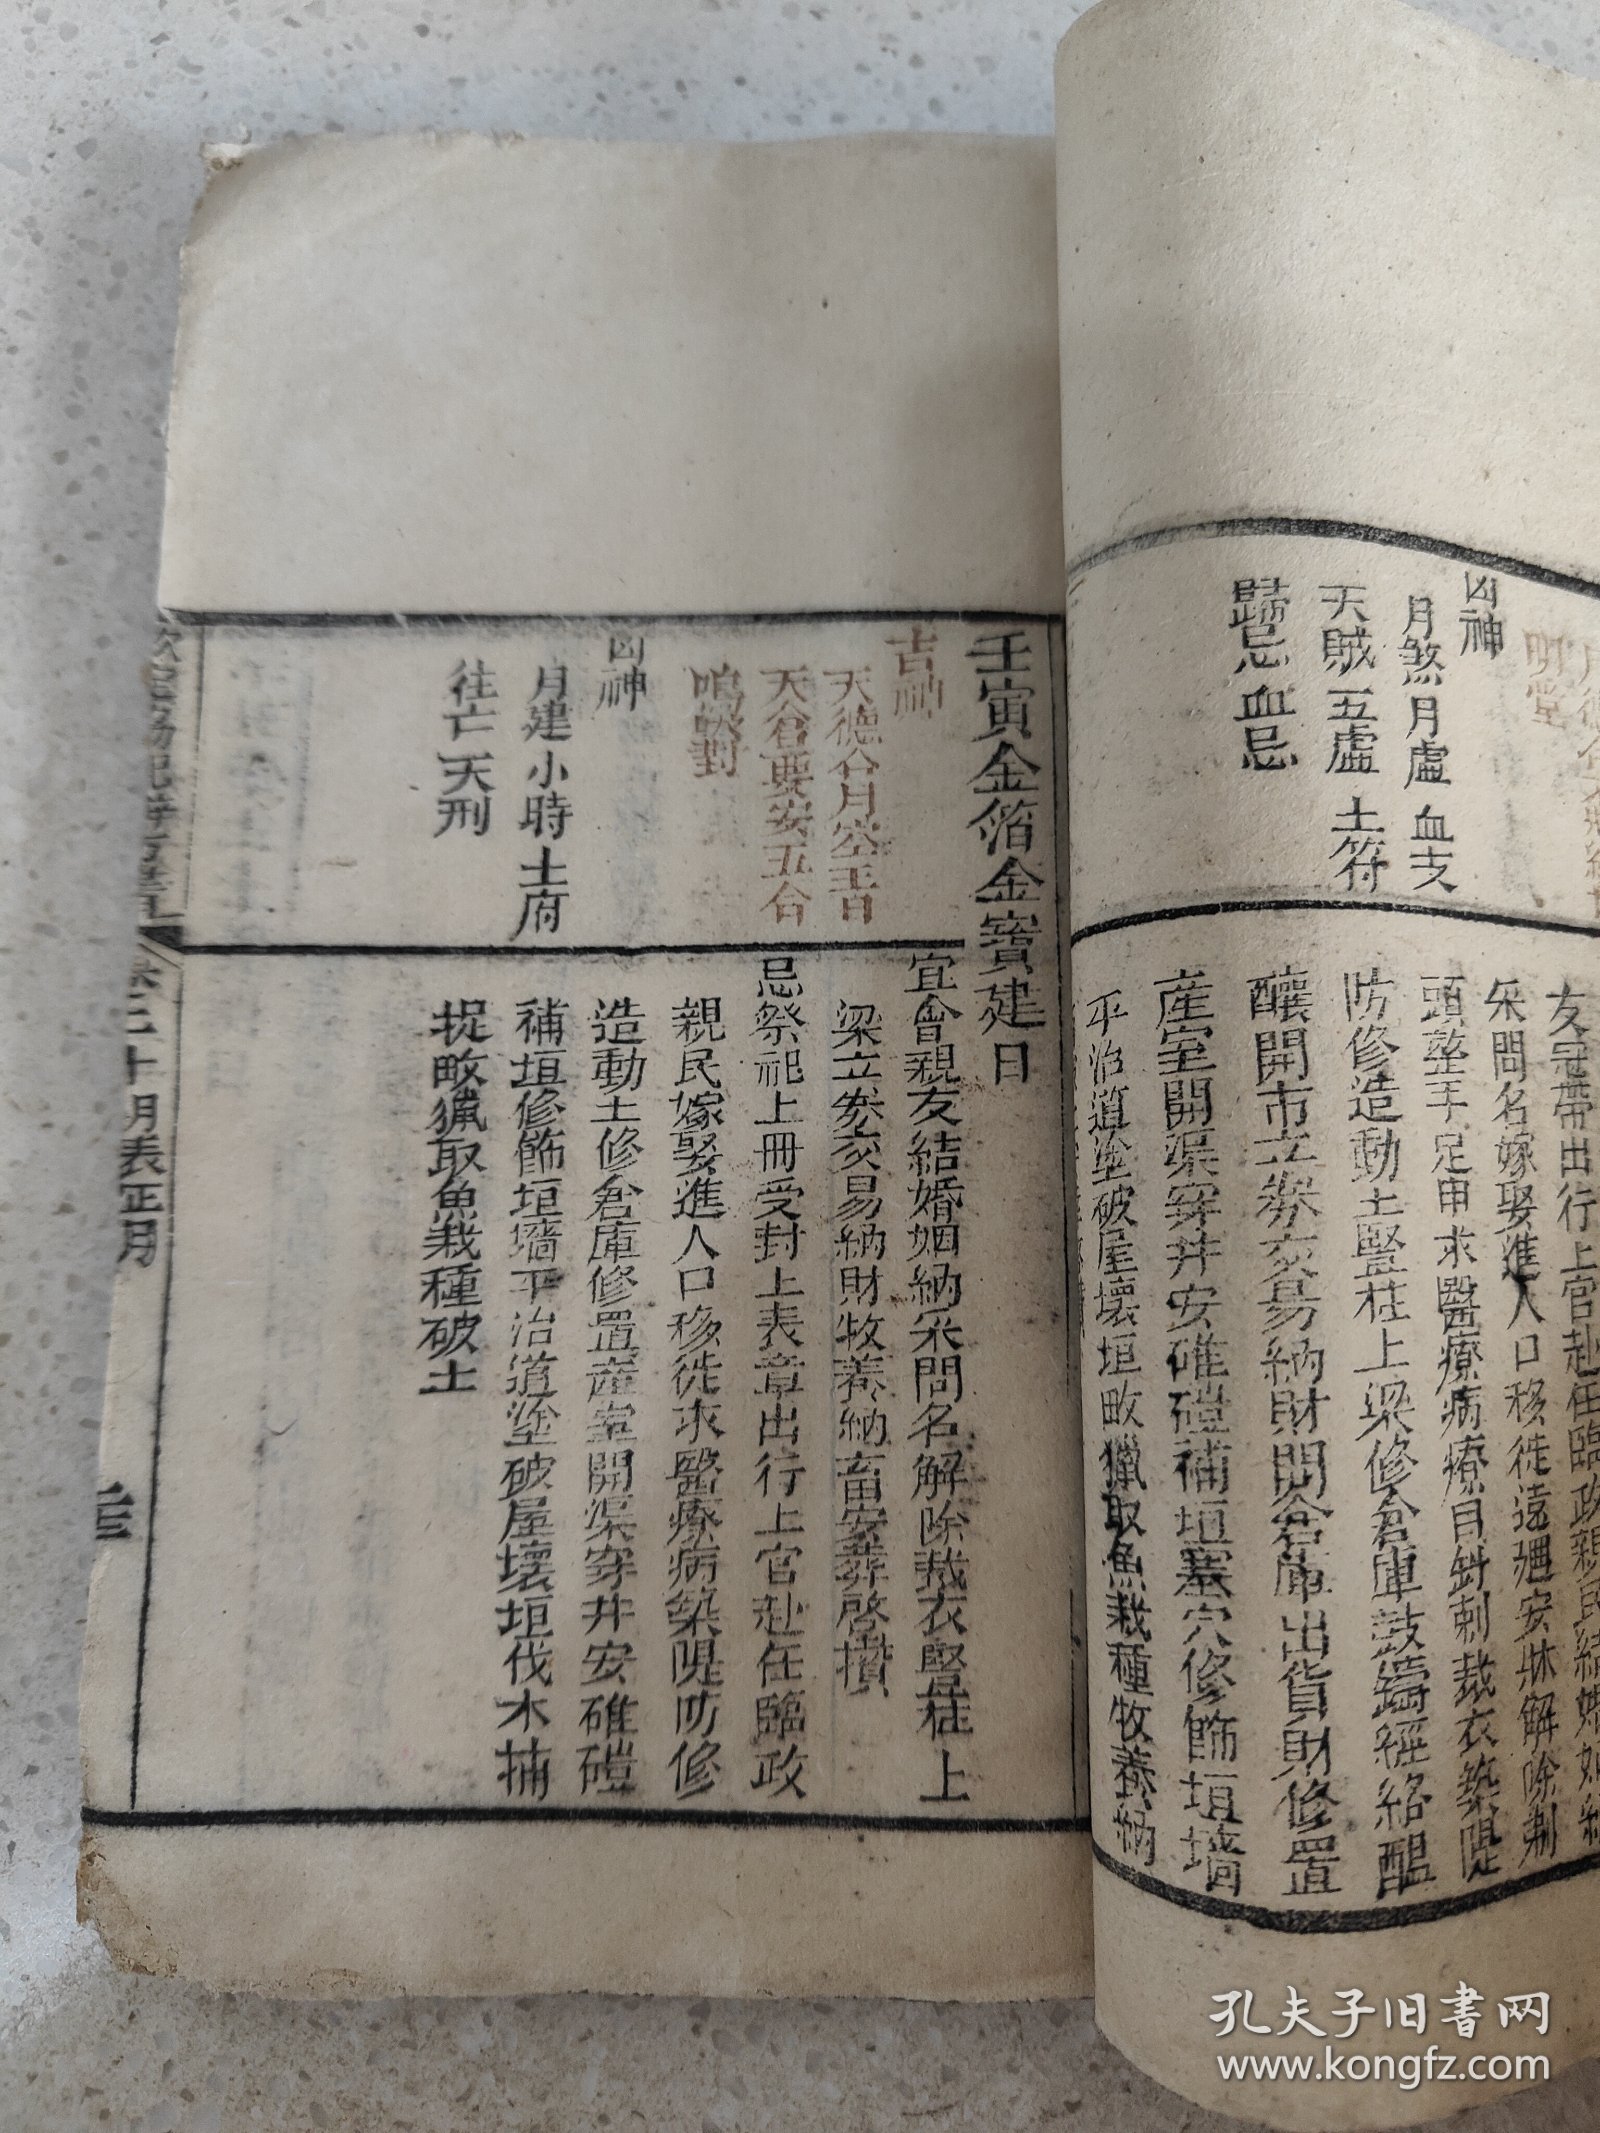 凶神
月煞月虛血支
天賊五虛土符
歸忌血忌
明堂
友冠帶出行上官赴任臨政親民結婚姻納
采問名嫁娶進人口移徙遠廻安牀解除剃
頭整手足甲求醫療病療目針刺裁衣築隄
防修造動土竪柱上梁修倉庫鼓鑄經絡醞
釀開市立券交易納財開倉庫出貨財修置
産室開渠穿井安碓磑補垣塞穴修飾垣墻
平治道塗破屋壞垣畋獵取魚栽種牧養納
壬寅金箔金寳建日
吉神
天德合月空王日
天倉要安五合
鳴吠對
凶神
月建小時土府
往亡天刑
宜會親友結婚姻納采問名解除裁衣竪柱上
梁立券交易納財牧養納畜安葬啓攢
忌祭祀上冊受封上表章出行上官赴任臨政
親民嫁娶進人口移徙求醫療病築隄防修
造動土修倉庫修置産室開渠穿井安碓磑
補垣修飾垣墻平治道塗破屋壞垣伐木捕
捉畋獵取魚栽種破土
卷二十月表正月
孔夫子旧書网
www.kongfz.com